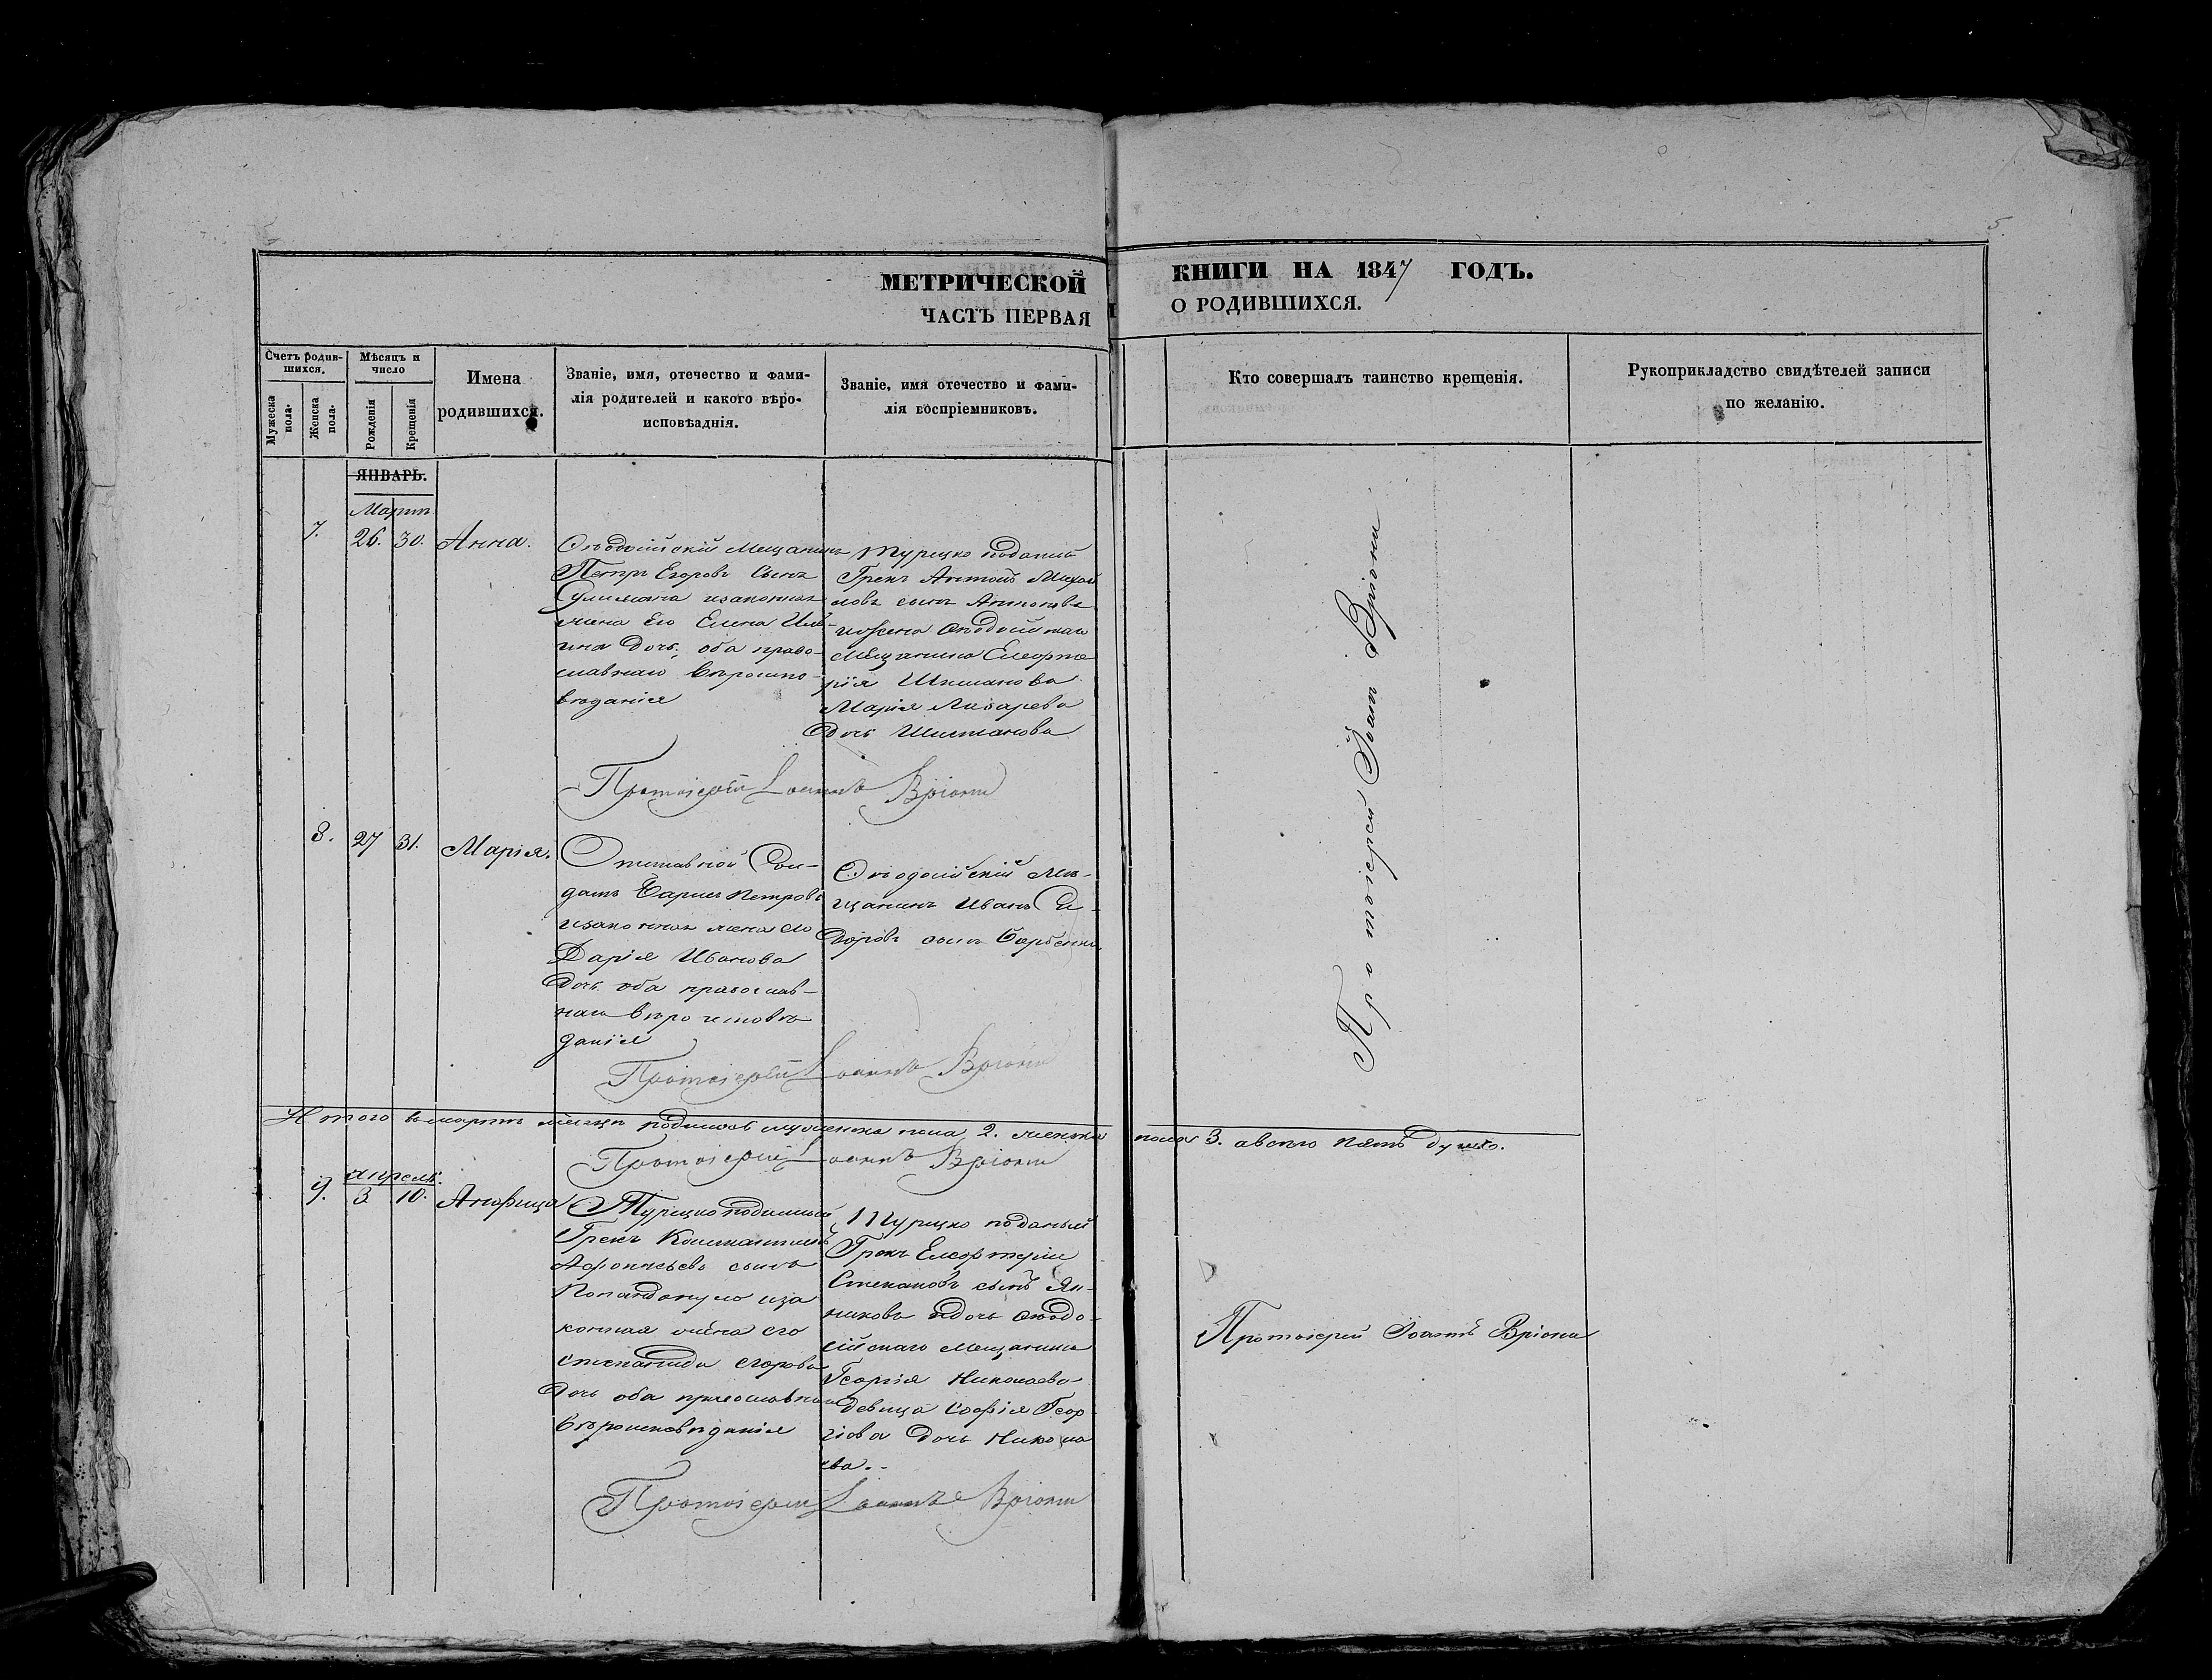 5.
МЕТРИЧЕСКОЙ КНИГИ НА 1847 ГОДЪ.
ЧАСТЬ ПЕРВАЯ О РОДИВШИХСЯ.
Счетъ родив-
шихся.
Мужеска
пола.
Женска
пола.
Мѣсяцъ и
число
Рожденія
Крещенія
Имена
родившихся.
Званіе, имя, отечество и фами-
лія родителей и какого вѣро-
исповѣаднія.
Званіе, имя отечество и фами-
лія воспріемниковъ.
Кто совершалъ таинство крещенія.
Рукоприкладство свидѣтелей записи
по желанію.
ЯНВАРЬ.
Мартъ
7. 26. 30. Анна.
Ѳеодосійскій Мещанинъ
Петръ Егоровъ Сынъ
изаконная
жена Его Елена
дочь; оба право-
славнаго вѣроиспо-
вѣданія
Турецко поданый
Грекъ Антонъ Михай
ловъ сынъ
ижена Ѳеодосійскаго
Мещанина Елеофте
рія Шишманова
Марія Лазарева
дочь Шишманова
Протоіерей Іоаннъ Вріони
Протоіерей Іоаннъ Вріони
8. 27 31. Марія.
Отставной Сол-
датъ Петровъ
изаконная жена его
Дарія Иванова
дочь оба православ-
наго вѣроисповѣ
данія
Ѳеодосійскій Мѣ-
щанинъ Иванъ Си-
доровъ сынъ
Протоіерей Іоаннъ Вріони
Итого вмартѣ месяцѣ родилось мужеска пола 2. женска пола 3. авсего пять душъ.
Протоіерей Іоаннъ Вріони
Апрель.
9. 3 10. Анфица
Турецко поданный
Грекъ Константинъ
Афонасьевъ сынъ
иза
конная жена его
Степанида Егорова
Дочь оба православнаго
вѣроисповѣданія
Турецко поданый
Грекъ Елеофтерій
Степановъ сынъ Ян-
никовъ идочь Ѳеодо-
сійскаго Мещанина
Георгія Николаева
девица Софія Геор
гіова дочь Никола
ева.-
Протоіерей Іоаннъ Вріони
Протоіерей Іоаннъ Вріони